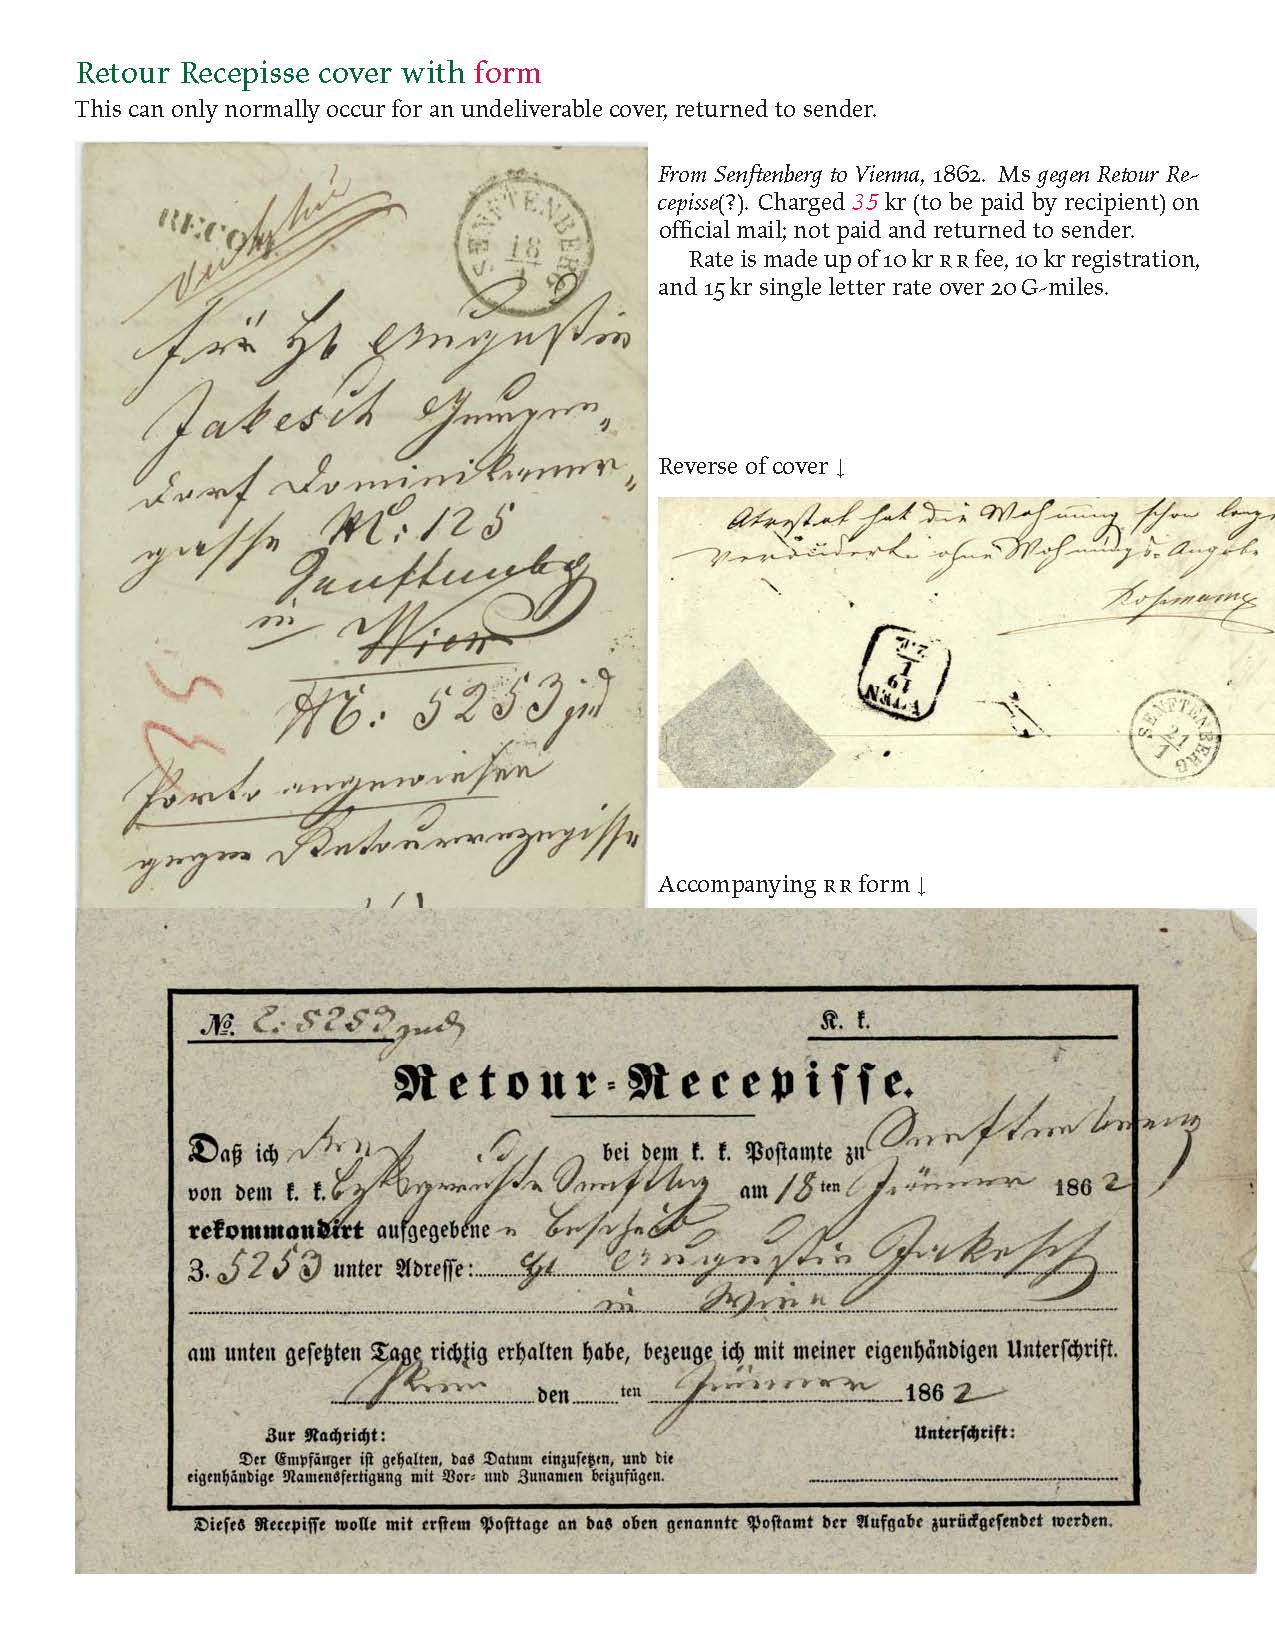 Retour Recepisse cover with form
This can only normally occur for an undeliverable cover, returned to sender.
From Senftenberg to Vienna, 1862. Ms gegen Retour Re-
cepisse(?). Charged 35 kr (to be paid by recipient) on
official mail; not paid and returned to sender.
Rate is made up of 10 kr RR fee, 10 kr registration,
and 15 kr single letter rate over 20 G-miles.
RECOM.
SENFTENBERG
18
1
Augustin
Jakesch
dorf Dominikaner-
gasse N: 125
Senftenbg
in Wien
N: 5253
35
Porto angewiesen
gegen Retourrezepisse
Reverse of cover ↓
hat die Wohnung schon
verändert ohne Wohnungs-Angabe
19
1
SENFTENBERG
21
1
Accompanying RR form ↓
No. 5253
K. k.
Retour-Recepisse.
Daß ich den bei dem k. k. Postamte zu Senftenberg
von dem k. k. am 18ten Jänner 1862
rekommandirt aufgegebene n Bescheid
Z. 5253 unter Adresse: Augustin Jakesch
in Wien
am unten gesetzten Tage richtig erhalten habe, bezeuge ich mit meiner eigenhändigen Unterschrift.
Wien den ten Jänner 1862
Zur Nachricht:
Unterschrift:
Der Empfänger ist gehalten, das Datum einzusetzen, und die
eigenhändige Namensfertigung mit Vor- und Zunamen beizufügen.
Dieses Recepisse wolle mit erstem Posttage an das oben genannte Postamt der Aufgabe zurückgesendet werden.